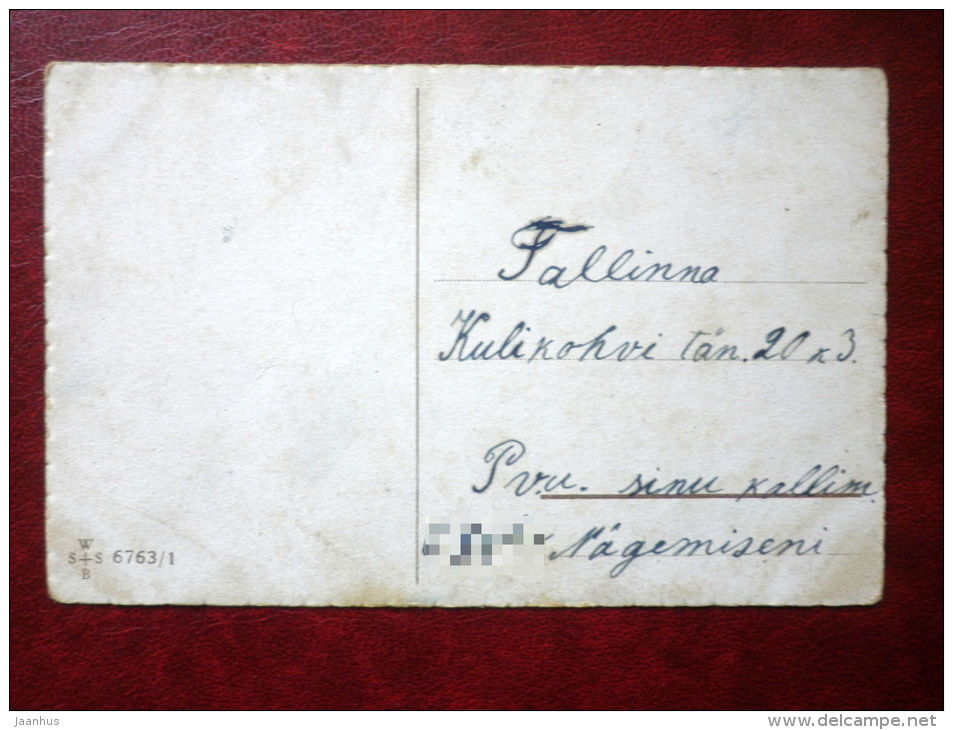 Tallinna
Kulikohvi tän. 20 k 3.
Pr.u. sinu kallim
Nägemiseni
W
S+S 6763/1
B
jaanhus
www.delcampe.net